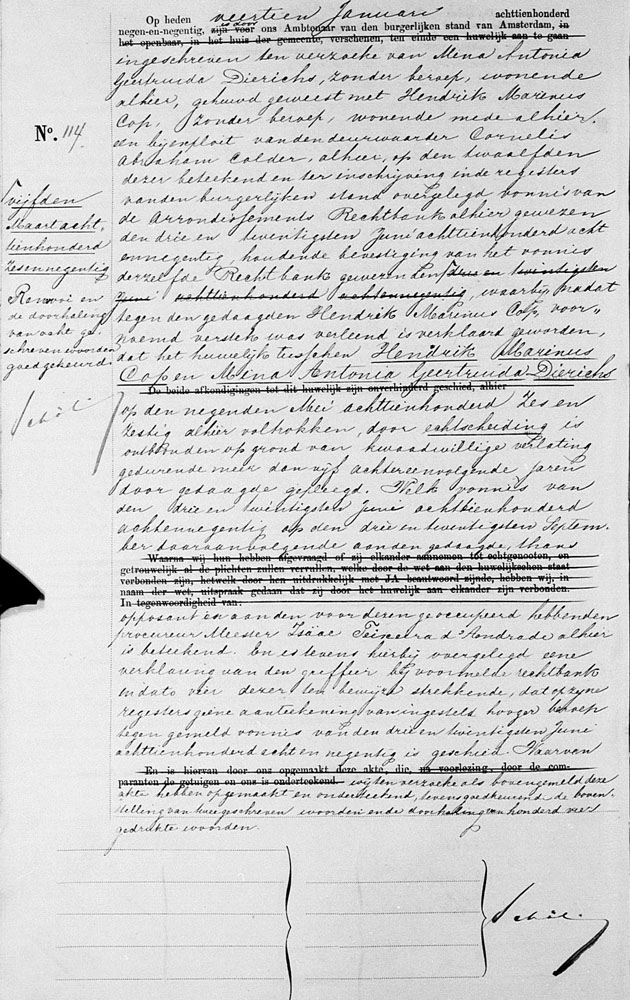 Op heden veertien Januari achttienhonderd
negen-en-negentig, zijn voor is door ons Ambtenaar van den burgerlijken stand van Amsterdam, in
het openbaar, in het huis der gemeente, verschenen, ten einde een huwelijk aan te gaan
ingeschreven ten verzoeke van Mena Antonia
Geertruida Dierichs, zonder beroep, wonende
alhier, gehuwd geweest met Hendrik Marinus
Cop, zonder beroep, wonende mede alhier,
een bij exploit van den deurwaarder Cornelis
Abraham Calder, alhier, op den twaalfden
dezer beteekend en ter inschrijving in de registers
van den burgerlijken stand overgelegd vonnis van
de Arrondissements Rechtbank alhier gewezen
den drie en twintigsten Juni achttienhonderd acht
en negentig, houdende bevestiging van het vonnis
derzelfde Rechtbank gewezen den drie en twintigsten
Juni achttienhonderd achtennegentig, waarbij, nadat
tegen den gedaagden Hendrik Marinus Cop, voor„
noemd verstek was verleend is verklaard geworden,
dat het huwelijk tusschen Hendrik Marinus
Cop en Mena Antonia Geertruida Dierichs
De beide afkondigingen tot dit huwelijk zijn onverhinderd geschied, alhier
op den negenden Mei achttienhonderd Zes en
Zestig alhier voltrokken, door echtscheiding is
ontbonden op grond van kwaadwillige verlating
gedurende meer dan vijf achtereenvolgende jaren
door gedaagde gepleegd. Welk vonnis van
den drie en twintigsten Juni achttienhonderd
achtennegentig op den drie en twintigsten Septem„
ber daaraanvolgende aan den gedaagde, thans
Waarna wij hun hebben afgevraagd of zij elkander aannemen tot echtgenooten, en
getrouwelijk al de plichten zullen vervullen, welke door de wet aan den huwelijkschen staat
verbonden zijn, hetwelk door hen uitdrukkelijk met JA beantwoord zijnde, hebben wij, in
naam der wet, uitspraak gedaan dat zij door het huwelijk aan elkander zijn verbonden.
In tegenwoordigheid van:
opposant en aan den voor dezen geoccupeerd hebbenden
procureur Meester Isäac Teixeira d'Andrade alhier
is beteekend. En is tevens hierbij overgelegd eene
verklaring van den griffier bij voormelde rechtbank
in dato vier dezer ten bewijze strekkende, dat op zijne
registers geene aanteekening van ingesteld hooger beroep
tegen gemeld vonnis van den drie en twintigsten Juni
achttienhonderd acht en negentig is geschied. Waarvan
En is hiervan door ons opgemaakt deze akte, die, na voorlezing, door de com-
paranten de getuigen en ons is onderteekend. wij ten verzoeke als bovengemeld deze
akte hebben opgemaakt en onderteekend, tevens goedkeurend de boven„
stelling van twee geschreven woorden en de doorhaling van honderd vier
gedrukte woorden.
No. 114.
vijfden
Maart acht„
tienhonderd
Zes en negentig
Renvooi en
de doorhaling
van acht ge„
schreven woorden
goedgekeurd.